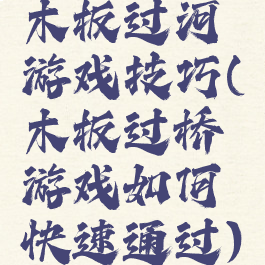 木板过河
游戏技巧(
木板过桥
游戏如何
快速通过)